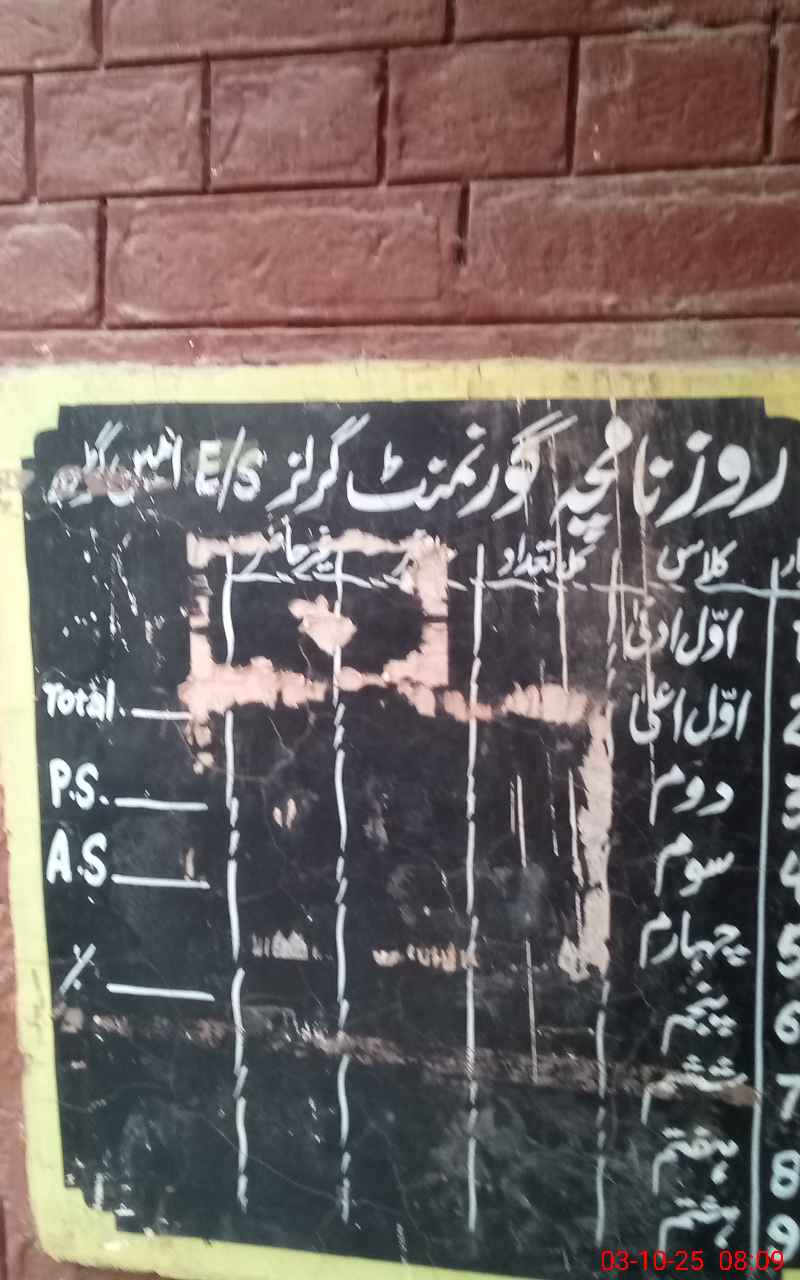 روزنامچہ گورنمنٹ گرلز E/S
کلاس کل تعداد حاضر غیر حاضر
1 اوّل ادنیٰ
2 اوّل اعلیٰ
Total.
3 دوم
P.S.
4 سوم
A.S
5 چہارم
%
6 پنجم
7 ششم
8 ہفتم
9 ہشتم
03-10-25 08:09